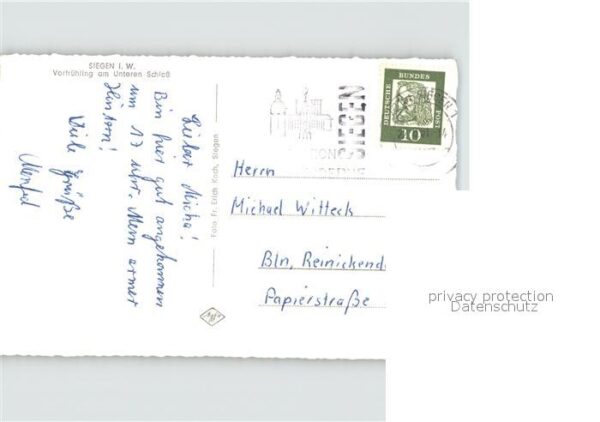 SIEGEN i. W.
Vorfrühling am Unteren Schloß
Lieber Micha!
Bin hier gut angekommen
um 17 Uhr. Mein armer
Hintern!
Viele Grüße
Foto Fr. Erich Koch, Siegen
Agfa
SIEGEN
DEUTSCHE BUNDESPOST
10
Herrn
Michael Witteck
Bln. Reinickend
Papierstraße
privacy protection
Datenschutz